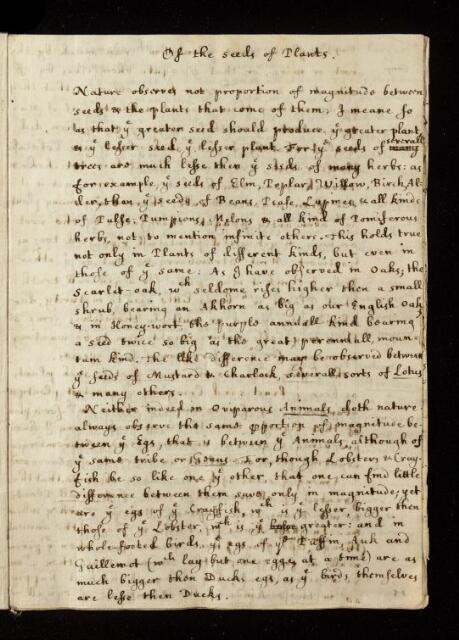 Of the seeds of Plants.
Nature observes not proportion of magnitude between
seeds & the plants that come of them; I meane so
as that yᵉ greater seed should produce yᵉ greater plant
& yᵉ lesser seed yᵉ lesser plant. For yᵉ seeds of severall
trees are much lesse then yᵉ seeds of many herbs: as
for example, yᵉ seeds of Elm, Poplar, Willow, Birch, Al-
der, than yᵉ seeds of Beans, Pease, Lupines & all kinds
of Pulse, Pumpions, Melons & all kind of Pomiferous
herbs, not to mention infinite others. This holds true
not only in Plants of different kinds, but even in
those of yᵉ same: As I have observed in Oaks; the
scarlet-oak, wᶜʰ seldome rises higher then a small
shrub, bearing an Akhorn as big as our English Oak
& in Honey-wort, the purple annuall kind bearing
a seed twice so big as the great perennall, moun-
tain kind. The like difference may be observed between
yᵉ seeds of Mustard & Charlock, severall sorts of Lotus
& many others.
Neither indeed in Oviparous Animals, doth nature
always observe the same proportion of magnitude be-
tween yᵉ Egs, that is between yᵉ Animals, although of
yᵉ same tribe or Genus. For, though Lobsters & Cray-
fish be so like one yᵉ other, that one can find little
difference between them save only in magnitude; yet
are yᵉ egs of yᵉ Crayfish, wᶜʰ is yᵉ lesser, bigger then
those of yᵉ Lobster, wᶜʰ is yᵉ greater: and in
whole-footed birds, yᵉ egs of yᵉ Puffin, Auk and
Guillemot (wᶜʰ lay but one egge at a time) are as
much bigger then Ducks egs, as yᵉ birds themselves
are lesse then Ducks.